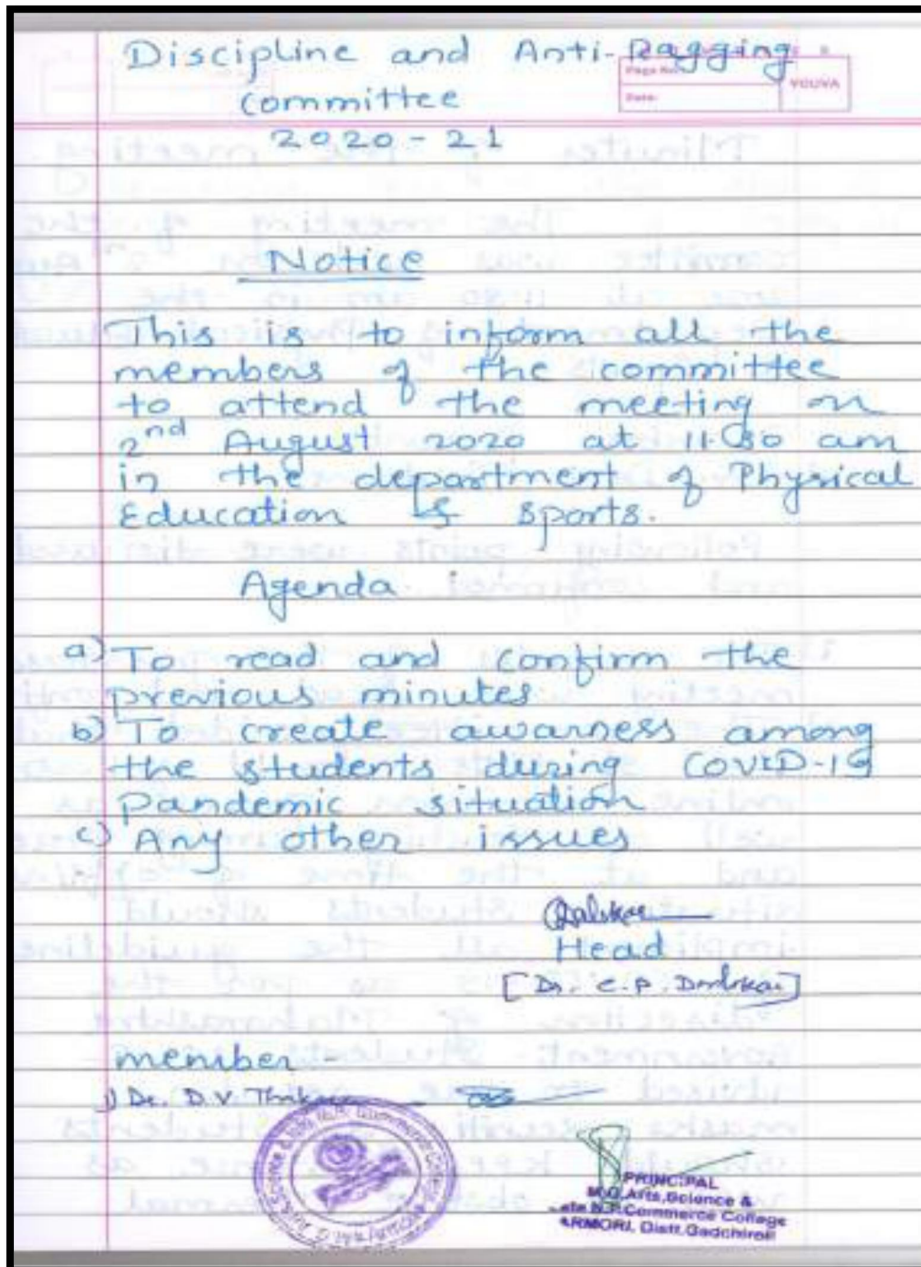 Discipline and Anti-Ragging
Committee
2020-21
Page No.
Date
YOUVA
Notice
This is to inform all the
members of the committee
to attend the meeting on
2nd August 2020 at 11.30 am
in the department of Physical
Education & sports.
Agenda
a) To read and confirm the
previous minutes
b) To create awarness among
the students during COVID-19
Pandemic situation
c) Any other issues
Head
[Dr. C.P.
member -
1) Dr. D.V.
PRINCIPAL
M.G. Arts, Science &
Late N.P. Commerce College
ARMORI, Distt. Gadchiroli